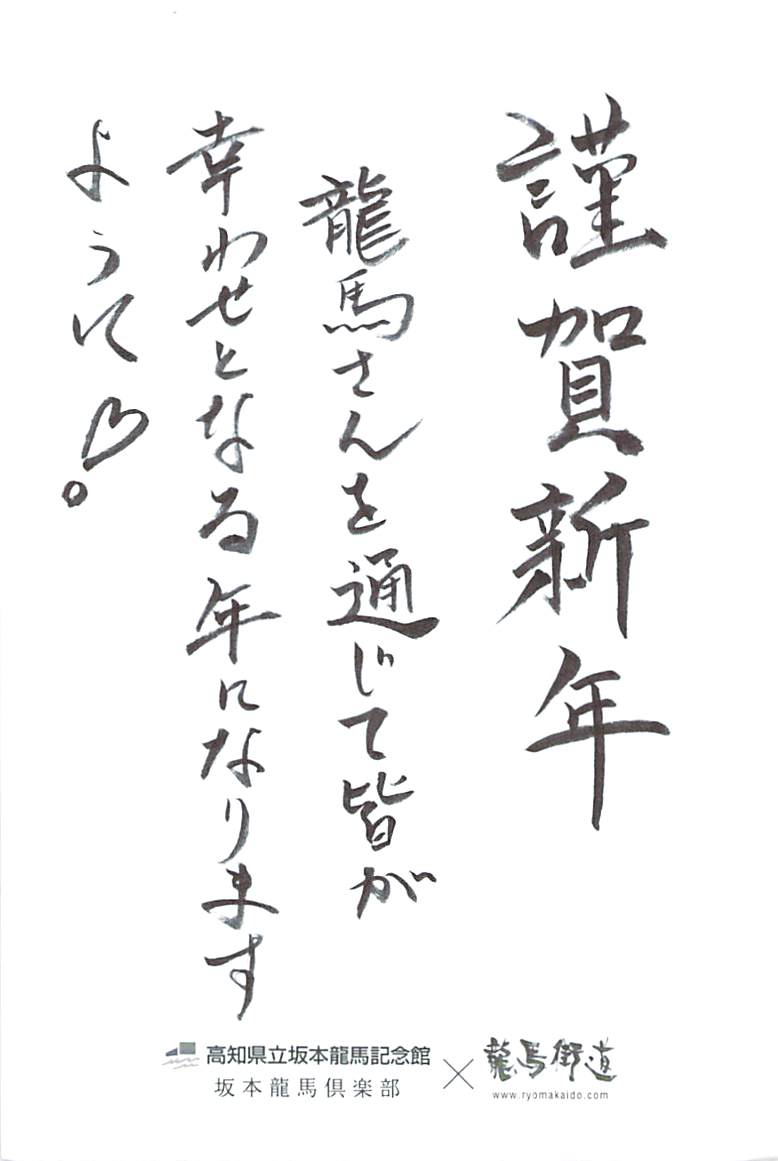 謹賀新年
龍馬さんを通じて皆が
幸わせとなる年になります
ように♡。
高知県立坂本龍馬記念館
坂本龍馬倶楽部
×
龍馬街道
www.ryomakaido.com